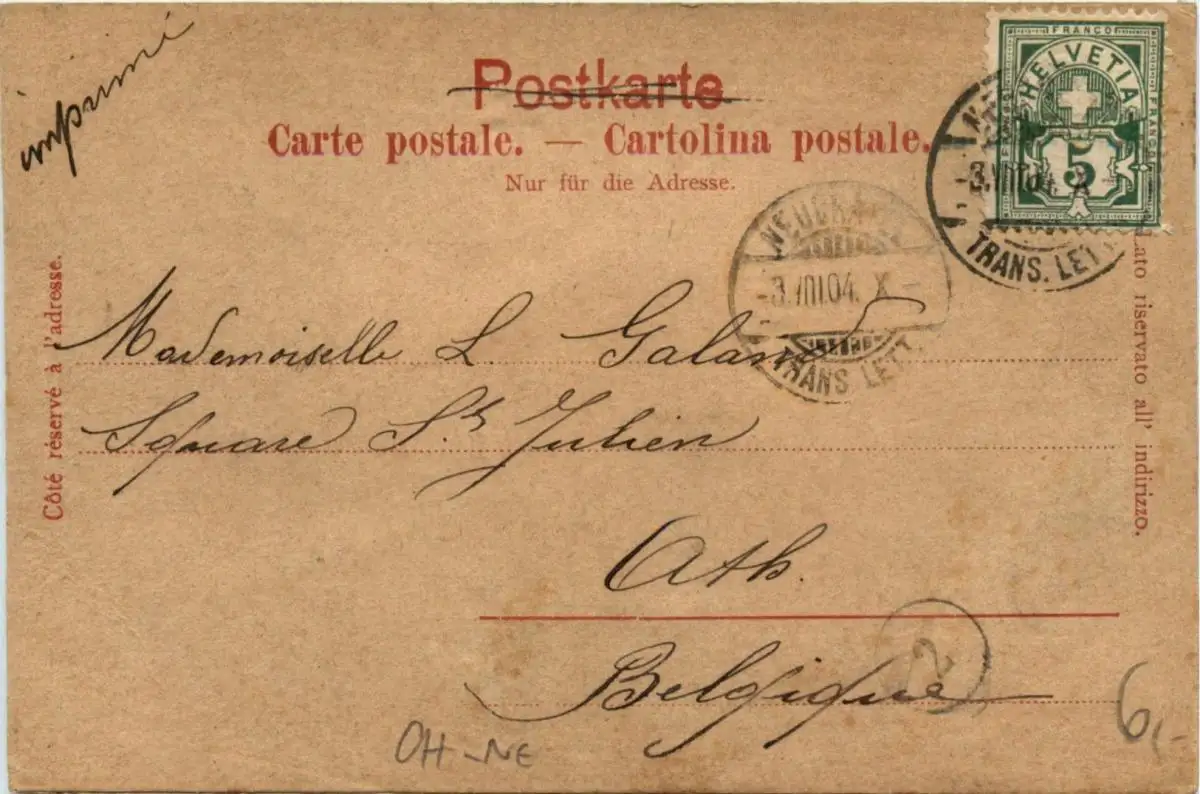 imprimé
Postkarte
Carte postale. — Cartolina postale.
Nur für die Adresse.
FRANCO
HELVETIA
5
-3.VIII.04. X
TRANS. LETT.
-3.VIII.04. X –
TRANS LETT.
Côté réservé à l'adresse.
Lato riservato all' indirizzo.
Mademoiselle L. Galand
Square St Julien
Ath.
Belgique
2
CH-NE
6,-